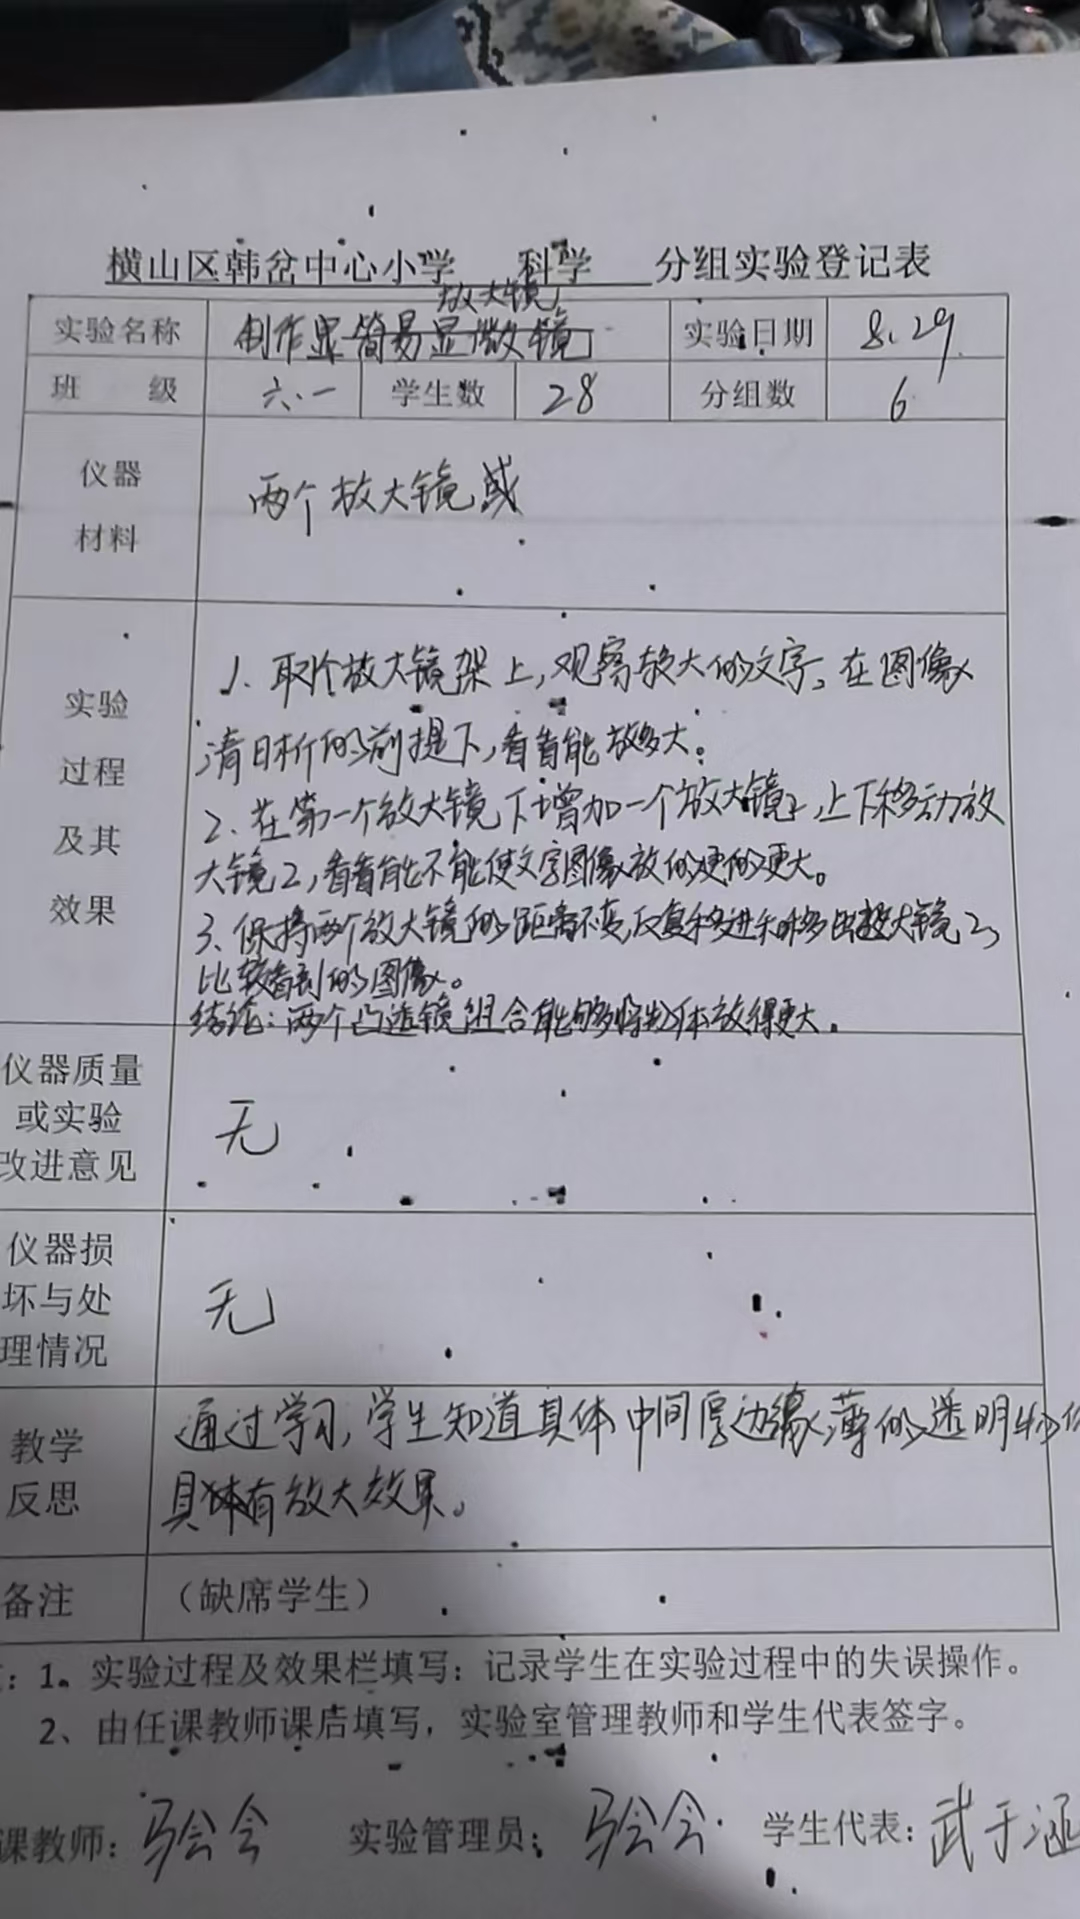 横山区韩岔中心小学 科学 分组实验登记表
放大镜
实验名称 制作显简易显微镜 实验日期 8.29.
班 级 六.一 学生数 28 分组数 6
仪器
材料
两个放大镜或
实验
过程
及其
效果
1、取个放大镜架上,观察放大的文字。在图像
清晰的前提下,看看能放多大。
2、在第一个放大镜下增加一个放大镜2,上下移动放
大镜2,看看能不能使文字图像放的更的更大。
3、保持两个放大镜的距离不变,反复移进和移出放大镜2,
比较看到的图像。
结论:两个凸透镜组合能够将物体放得更大.
仪器质量
或实验
改进意见
无
仪器损
坏与处
理情况
无
教学
反思
通过学习,学生知道具体中间厚边缘薄的透明物
具体有放大效果。
备注 (缺席学生)
:1. 实验过程及效果栏填写:记录学生在实验过程中的失误操作。
2、由任课教师课后填写,实验室管理教师和学生代表签字。
课教师: 实验管理员: 学生代表:武于涵